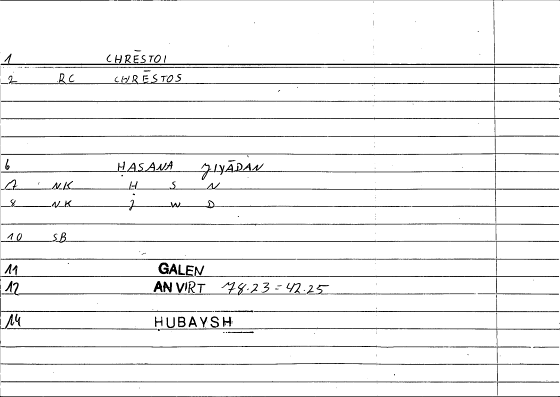 1 CHRĒSTOI
2 RC CHRĒSTOS
6 ḤASANA JIYĀDAN
7 NK Ḥ S N
8 NK J W D
10 SB
11 GALEN
12 AN VIRT 78.23 = 42.25
14 ḤUBAYSH